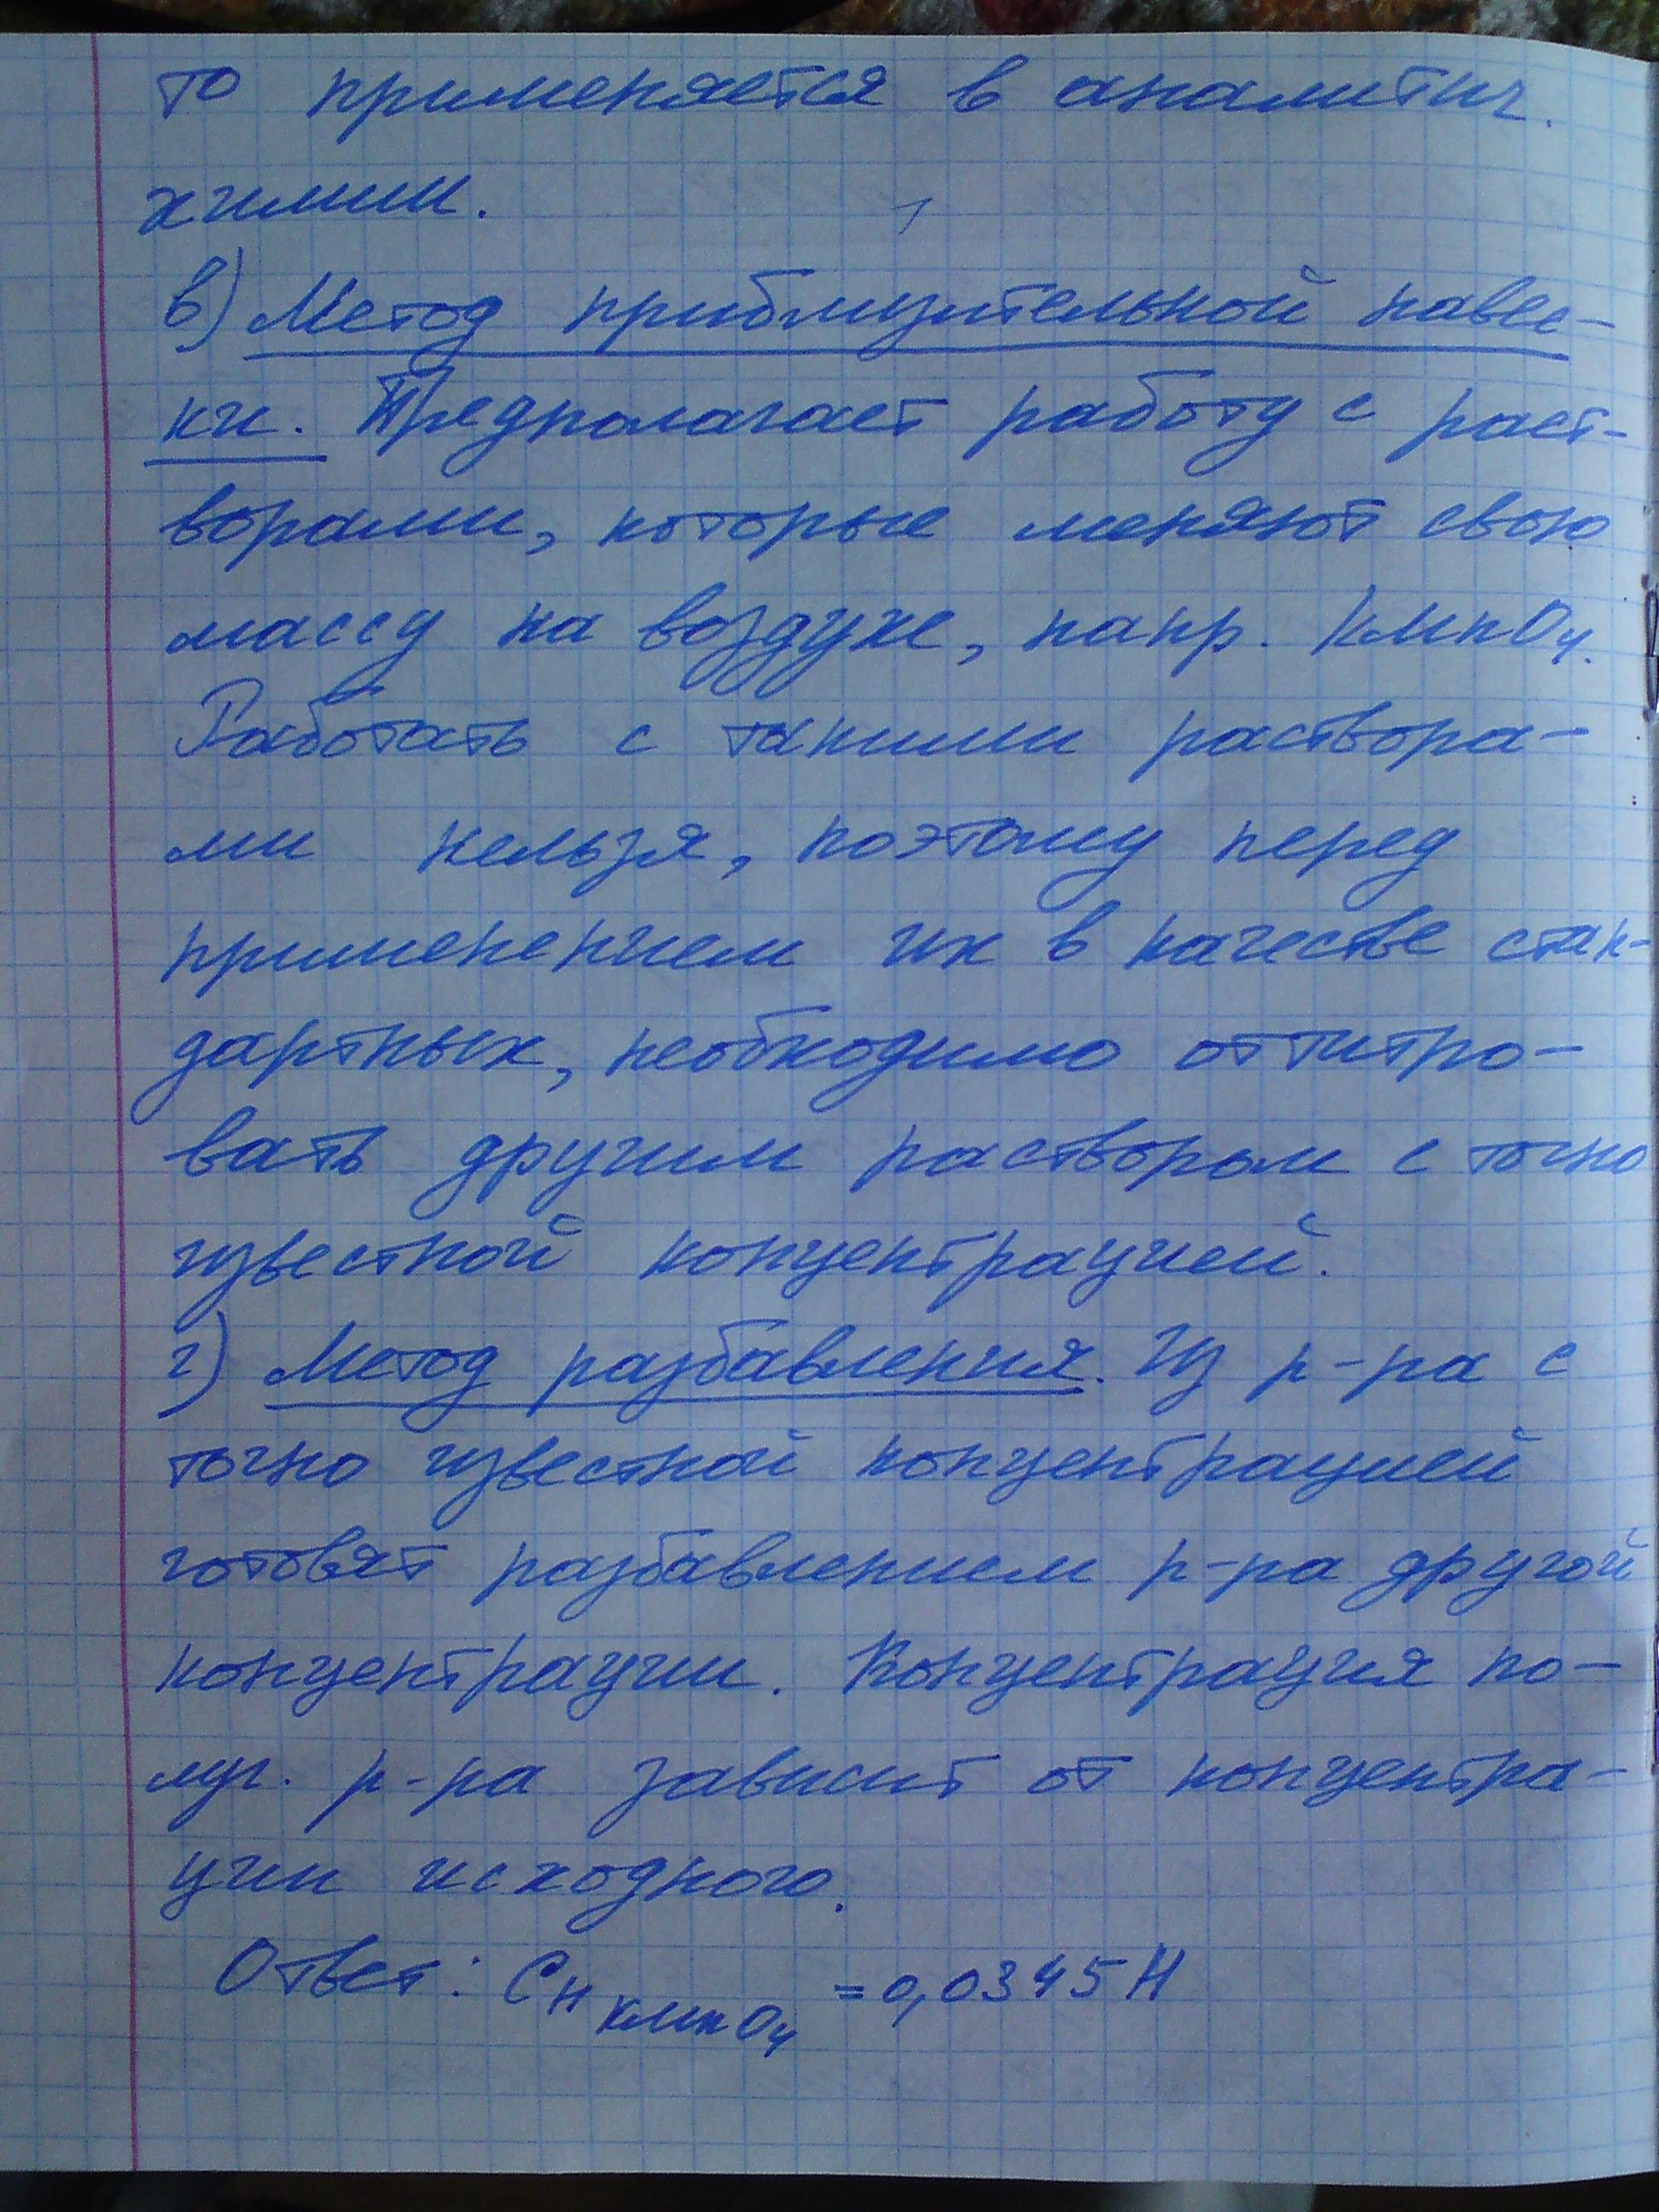 то применяется в аналитич.
химии.
в) Метод приблизительной навес-
ки. Предполагает работу с раст-
ворами, которые меняют свою
массу на воздухе, напр. KMnO₄.
Работать с такими раствора-
ми нельзя, поэтому перед
применением их в качестве стан-
дартных, необходимо оттитро-
вать другим раствором с точно
известной концентрацией.
г) Метод разбавления. Из р-ра с
точно известной концентрацией
готовят разбавлением р-ра другой
концентрации. Концентрация по-
луч. р-ра зависит от концентра-
ции исходного.
Ответ: Cн KMnO₄ = 0,0345 Н